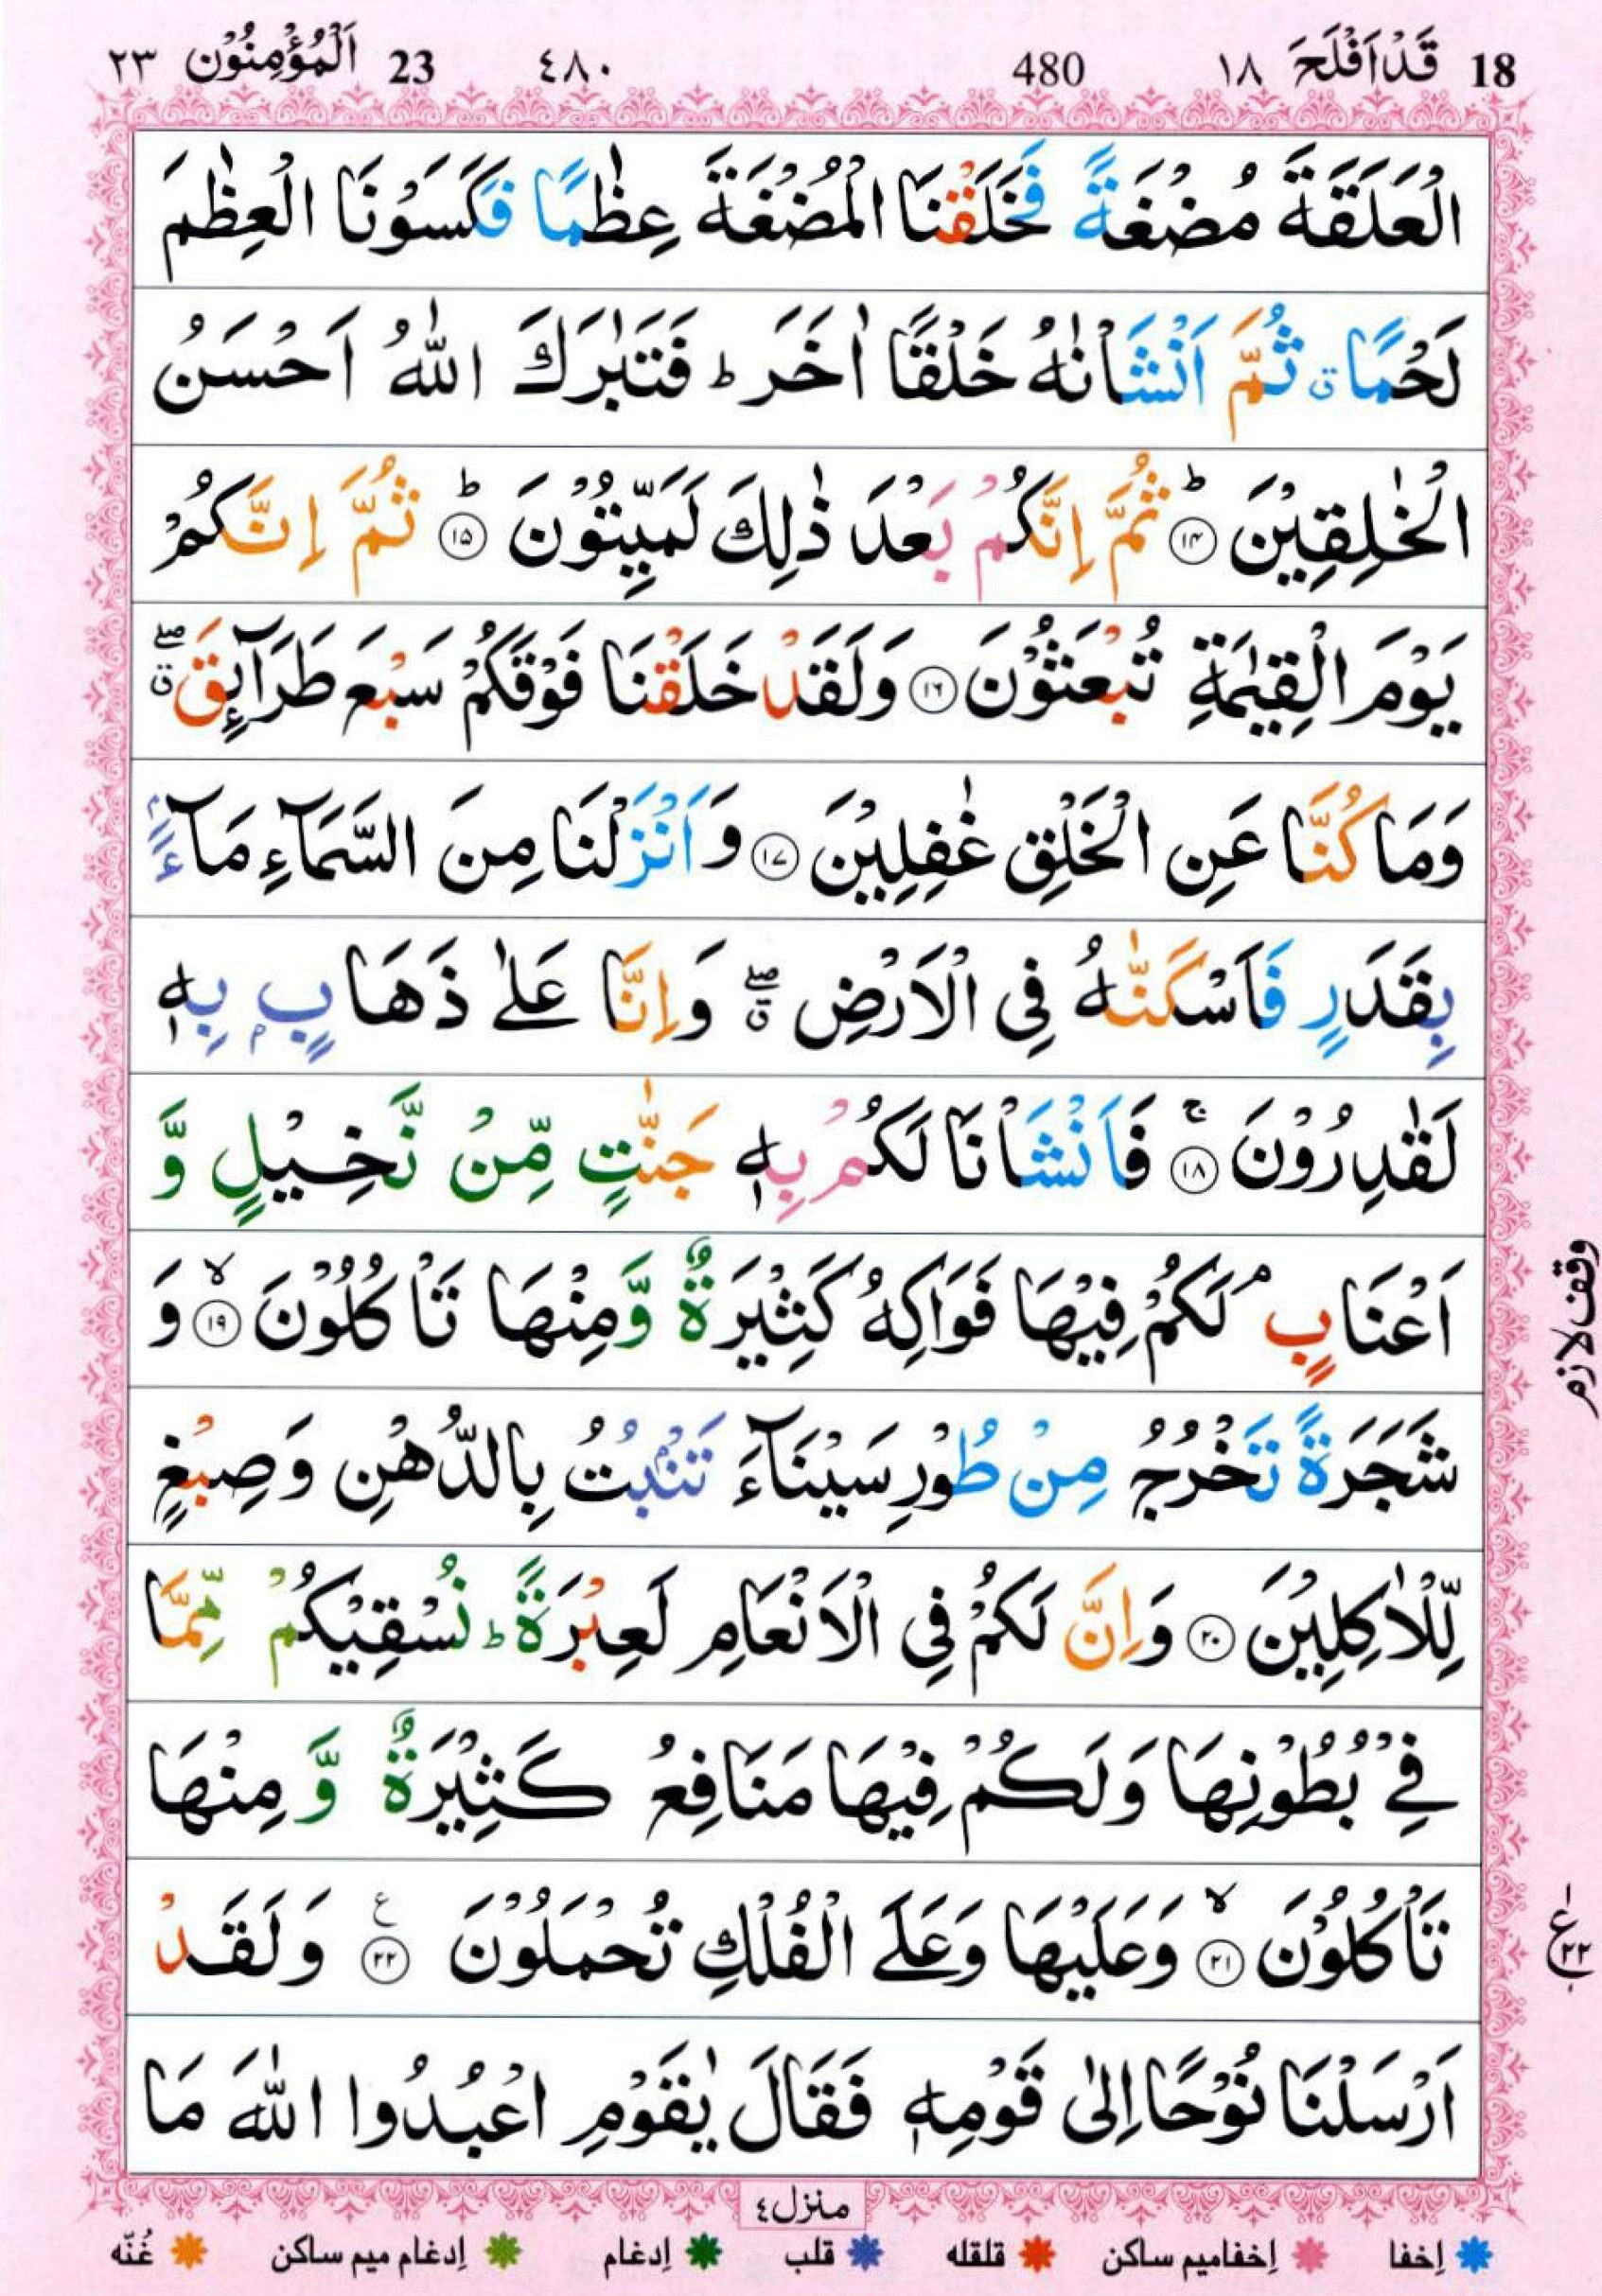 18 قَدْاَفْلَحَ ١٨ 480 ٤٨٠ 23 اَلْمُؤْمِنُوْن ٢٣
الْعَلَقَةَ مُضْغَةً فَخَلَقْنَا الْمُضْغَةَ عِظٰمًا فَكَسَوْنَا الْعِظٰمَ
لَحْمًا ۗ ثُمَّ اَنْشَاْنٰهُ خَلْقًا اٰخَرَ ؕ فَتَبٰرَكَ اللّٰهُ اَحْسَنُ
الْخٰلِقِيْنَ ؕ ۱۴ ثُمَّ اِنَّكُمْ بَعْدَ ذٰلِكَ لَمَيِّتُوْنَ ؕ ۱۵ ثُمَّ اِنَّكُمْ
يَوْمَ الْقِيٰمَةِ تُبْعَثُوْنَ ۱۶ وَلَقَدْ خَلَقْنَا فَوْقَكُمْ سَبْعَ طَرَآئِقَ ۖۗ
وَمَا كُنَّا عَنِ الْخَلْقِ غٰفِلِيْنَ ۱۷ وَاَنْزَلْنَا مِنَ السَّمَآءِ مَآءًۢ
بِقَدَرٍ فَاَسْكَنّٰهُ فِى الْاَرْضِ ۖۗ وَاِنَّا عَلٰى ذَهَابٍۢ بِهٖ
لَقٰدِرُوْنَ ۚ ۱۸ فَاَنْشَاْنَا لَكُمْ بِهٖ جَنّٰتٍ مِّنْ نَّخِيْلٍ وَّ
اَعْنَابٍ ۘ لَكُمْ فِيْهَا فَوَاكِهُ كَثِيْرَةٌ وَّمِنْهَا تَاْكُلُوْنَ ۙ ۱۹ وَ
شَجَرَةً تَخْرُجُ مِنْ طُوْرِ سَيْنَآءَ تَنْۢبُتُ بِالدُّهْنِ وَصِبْغٍ
لِّلْاٰكِلِيْنَ ۲۰ وَاِنَّ لَكُمْ فِى الْاَنْعَامِ لَعِبْرَةً ؕ نُسْقِيْكُمْ مِّمَّا
فِىْ بُطُوْنِهَا وَلَكُمْ فِيْهَا مَنَافِعُ كَثِيْرَةٌ وَّ مِنْهَا
تَاْكُلُوْنَ ۙ ۲۱ وَعَلَيْهَا وَعَلَى الْفُلْكِ تُحْمَلُوْنَ ع ۲۲ وَلَقَدْ
اَرْسَلْنَا نُوْحًا اِلٰى قَوْمِهٖ فَقَالَ يٰقَوْمِ اعْبُدُوا اللّٰهَ مَا
وقف لازم
ع ۲۲
منزل٤
اِخفا اِخفامیم ساکن قلقله قلب اِدغام اِدغام میم ساکن غُنّه